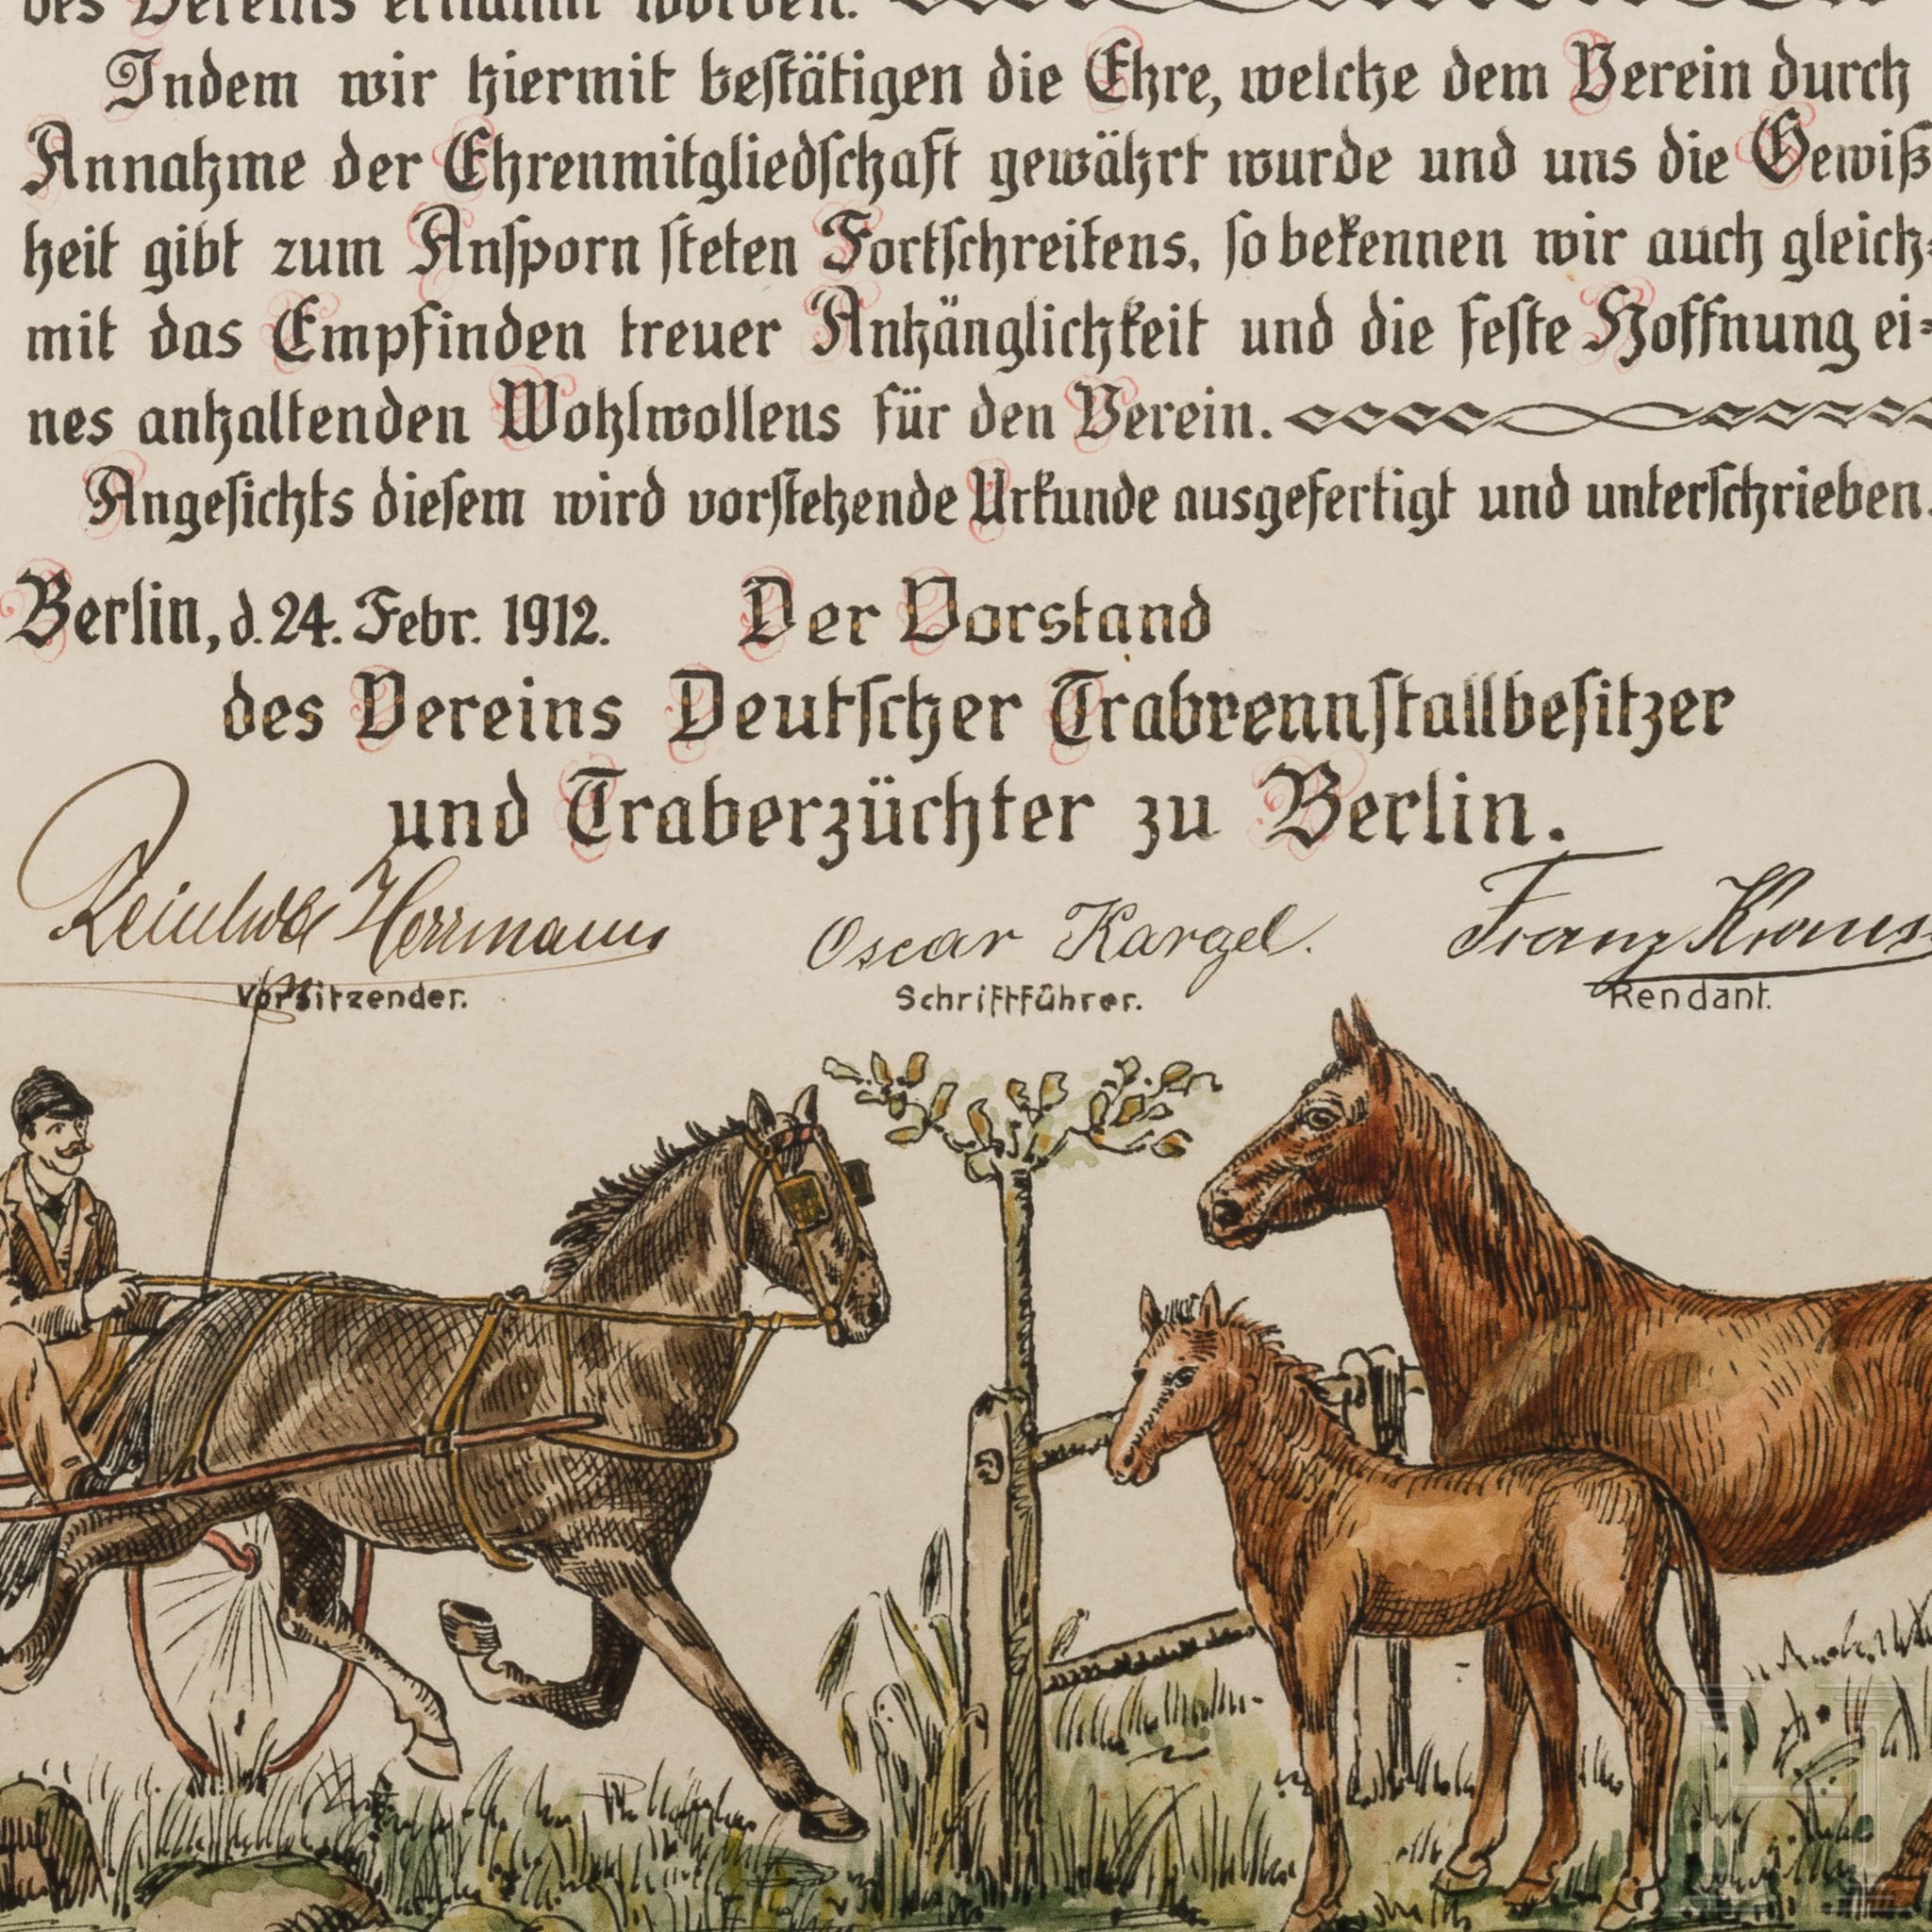 des Vereins ernannt worden.
Indem wir hiermit beſtätigen die Ehre, welche dem Verein durch
Annahme der Ehrenmitgliedſchaft gewährt wurde und uns die Gewiß
heit gibt zum Anſporn ſteten Fortſchreitens, ſo bekennen wir auch gleich=
mit das Empfinden treuer Anhänglichkeit und die feſte Hoffnung ei=
nes anhaltenden Wohlwollens für den Verein.
Angeſichts dieſem wird vorſtehende Urkunde ausgefertigt und unterſchrieben.
Berlin, d. 24. Febr. 1912. Der Vorstand
des Vereins Deutſcher Trabrennſtallbeſitzer
und Traberzüchter zu Berlin.
Reinhold Herrmann Oscar Kargel. Franz Kraus
Vorsitzender. Schriftführer. Rendant.